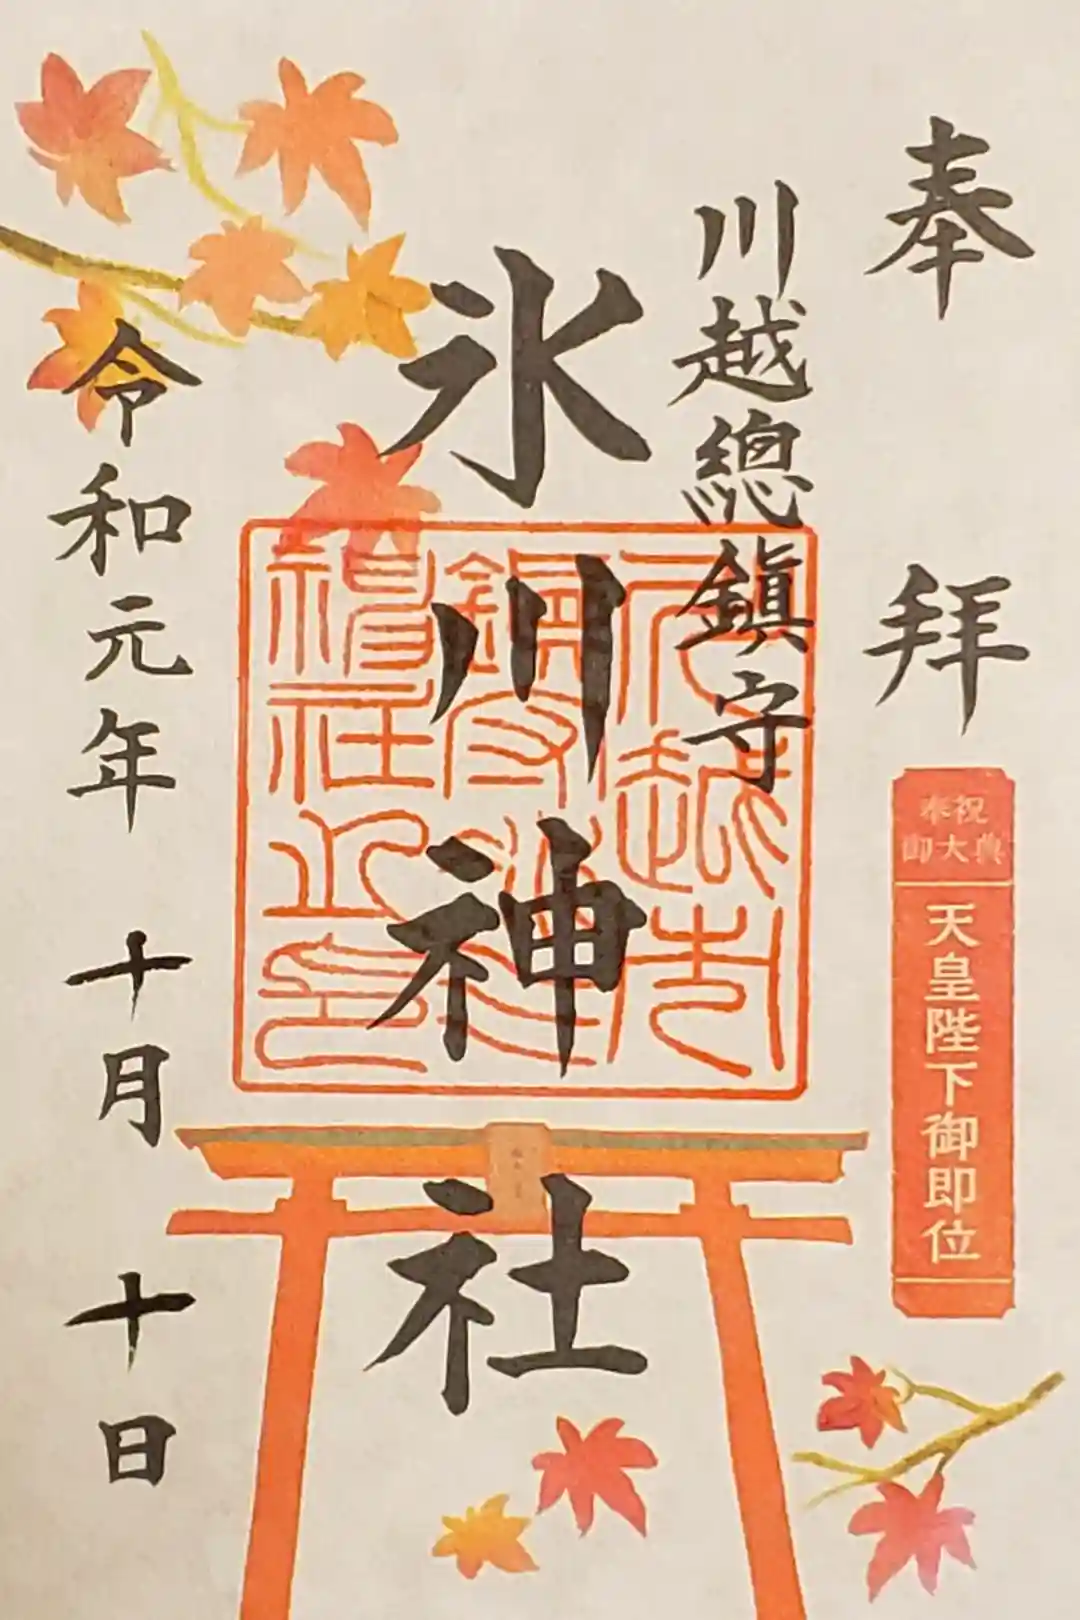 奉拝
奉祝
御大典
天皇陛下御即位
川越總鎮守
氷川神社
令和元年 十月 十日